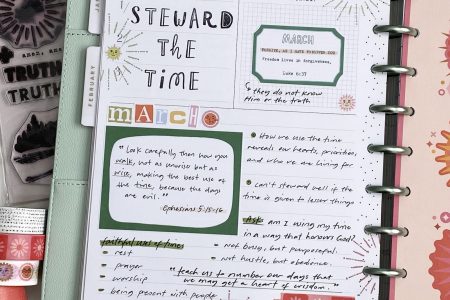 STEWARD
THE
TIME
MARCH
FORGIVE, AS I HAVE FORGIVEN YOU
Freedom lives in forgiveness,
Luke 6:37
they do not know
Him or the truth
JANUARY
FEBRUARY
TRUTH
TRUTH
MARCH
"Look carefully then how you
walk, not as unwise but as
wise, making the best use of
the time, because the days
are evil."
- Ephesians 5:15-16
How we use the time
reveals our hearts, priorities,
and who we are living for
Can't steward well if the
time is given to lesser things
Ask: am I using my time
in a way that honors God?
faithful use of time
rest
prayer
worship
being present with people
not busy, but purposeful.
not hustle, but obedience.
"teach us to number our days that
we may get a heart of wisdom."